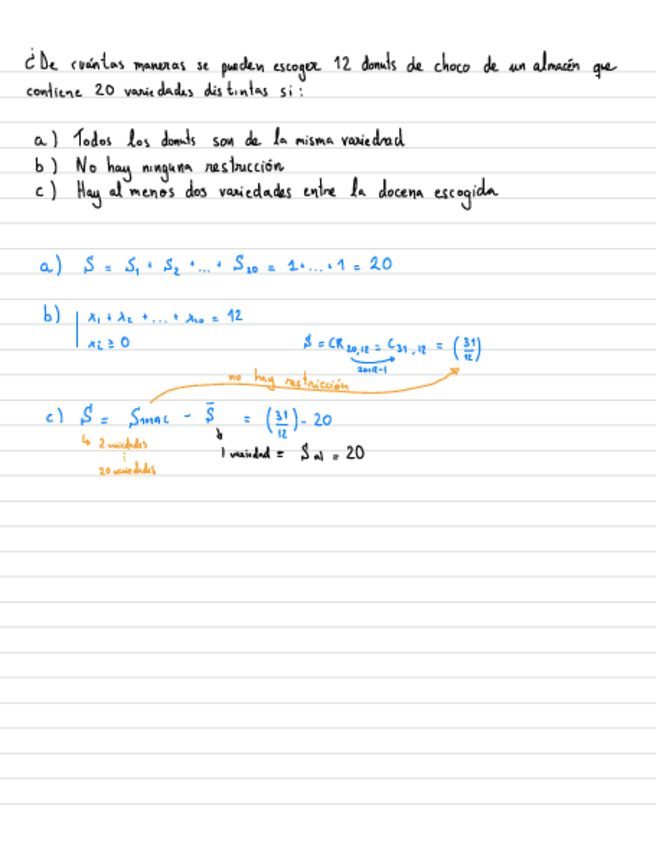 ¿De cuántas maneras se pueden escoger 12 donuts de choco de un almacén que
contiene 20 variedades distintas si:
a) Todos los donuts son de la misma variedad
b) No hay ninguna restrucción
c) Hay al menos dos variedades entre la docena escogida
a) S = S₁ + S₂ + ... + S₂₀ = 1 + ... + 1 = 20
b) | x₁ + x₂ + ... + x₂₀ = 12
| xᵢ ≥ 0
S = CR₂₀,₁₂ = C₃₁,₁₂ = (31/12)
20+12-1
no hay restricción
c) S = Smac - S̄ = (31/12) - 20
↳ 2 variedades
⋮
20 variedades
↳
1 variedad = S a) = 20